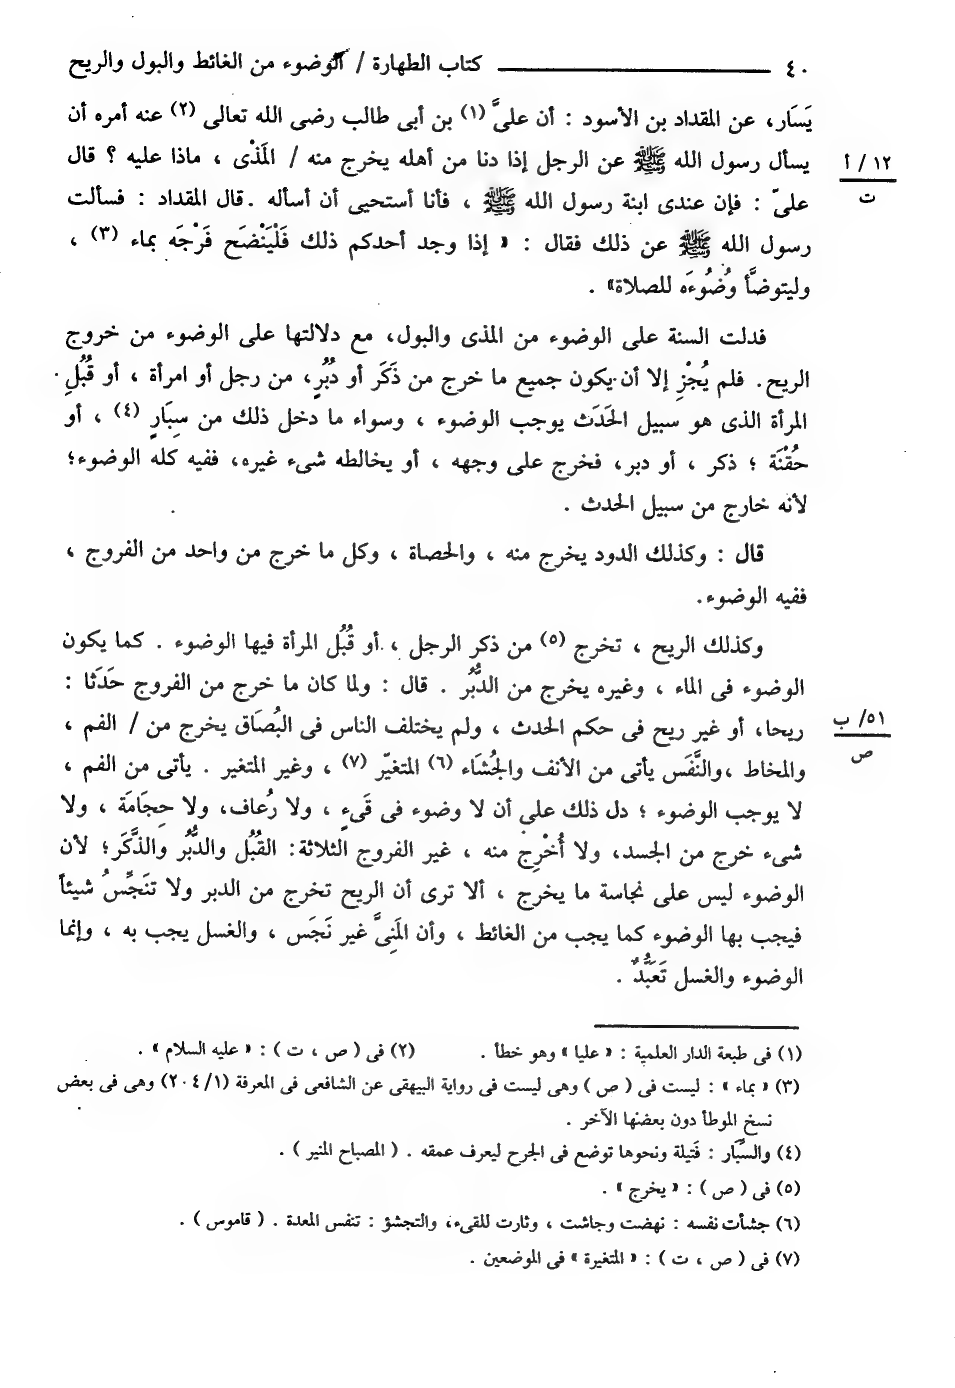 ٤٠ ــــــــــــ كتاب الطهارة / الوضوء من الغائط والبول والريح
يَسَار، عن المقداد بن الأسود : أن علىَّ (١) بن أبى طالب رضى الله تعالى (٢) عنه أمره أن
يسأل رسول الله ﷺ عن الرجل إذا دنا من أهله يخرج منه / المَذْى ، ماذا عليه ؟ قال
١٢ / أ
ت
علىّ : فإن عندى ابنة رسول الله ﷺ ، فأنا أستحيى أن أسأله . قال المقداد : فسألت
رسول الله ﷺ عن ذلك فقال : « إذا وجد أحدكم ذلك فَلْيَنْضَح فَرْجَه بماء (٣) ،
وليتوضَّأ وُضُوءَه للصلاة» .
فدلت السنة على الوضوء من المذى والبول، مع دلالتها على الوضوء من خروج
الريح. فلم يُجْزِ إلا أن يكون جميع ما خرج من ذَكَر أو دُبُرٍ، من رجل أو امرأة ، أو قُبُلِ
المرأة الذى هو سبيل الحَدَث يوجب الوضوء ، وسواء ما دخل ذلك من سِبَارٍ (٤) ، أو
حُقْنَة ؛ ذكر ، أو دبر، فخرج على وجهه ، أو يخالطه شىء غيره، ففيه كله الوضوء؛
لأنه خارج من سبيل الحدث .
قال : وكذلك الدود يخرج منه ، والحصاة ، وكل ما خرج من واحد من الفروج ،
ففيه الوضوء.
وكذلك الريح ، تخرج (٥) من ذكر الرجل ، أو قُبُل المرأة فيها الوضوء . كما يكون
الوضوء فى الماء ، وغيره يخرج من الدُّبُر . قال : ولما كان ما خرج من الفروج حَدَثا :
ريحا، أو غير ريح فى حكم الحدث ، ولم يختلف الناس فى البُصَاق يخرج من / الفم ،
٥١/ ب
ص
والمخاط ،والنَّفَس يأتى من الأنف والجُشَاء (٦) المتغيّر (٧) ، وغير المتغير . يأتى من الفم ،
لا يوجب الوضوء ؛ دل ذلك على أن لا وضوء فى قَىءٍ ، ولا رُعاف، ولا حِجَامَة ، ولا
شىء خرج من الجسد، ولا أُخْرِج منه ، غير الفروج الثلاثة: القُبُل والدُّبُر والذَّكَر؛ لأن
الوضوء ليس على نجاسة ما يخرج ، ألا ترى أن الريح تخرج من الدبر ولا تنَجِّسُ شيئاً
فيجب بها الوضوء كما يجب من الغائط ، وأن المَنِىَّ غير نَجَس ، والغسل يجب به ، وإنما
الوضوء والغسل تَعَبُّدٌ .
(١) فى طبعة الدار العلمية : « عليا » وهو خطأ . (٢) فى ( ص ، ت ) : « عليه السلام » .
(٣) « بماء » : ليست فى ( ص ) وهى ليست فى رواية البيهقى عن الشافعى فى المعرفة (١/ ٢٠٤) وهى فى بعض
نسخ الموطأ دون بعضها الآخر .
(٤) والسِّبَار : فَتيلة ونحوها توضع فى الجرح ليعرف عمقه . ( المصباح المنير ) .
(٥) فى ( ص ) : « يخرج » .
(٦) جشأت نفسه : نهضت وجاشت ، وثارت للقىء، والتجشؤ : تنفس المعدة . ( قاموس ) .
(٧) فى ( ص ، ت ) : « المتغيرة » فى الموضعين .